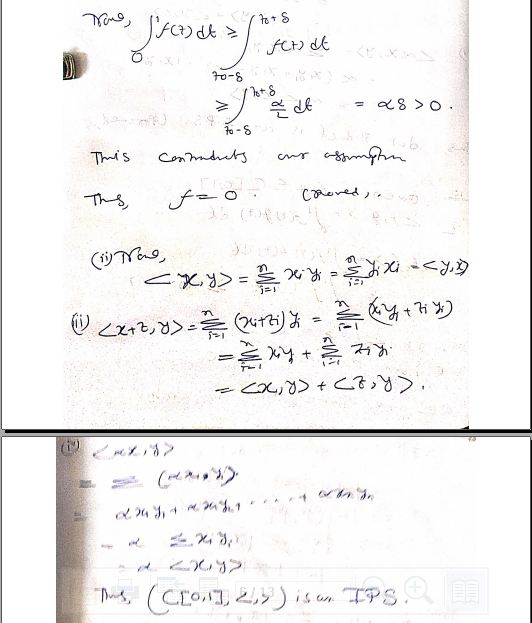 Now, ∫₀¹ f(t) dt ≥ ∫_{t₀-δ}^{t₀+δ} f(t) dt
≥ ∫_{t₀-δ}^{t₀+δ} α/2 dt = αδ > 0.
This contradicts our assumption
Thus, f = 0. (Proved).
(ii) Now,
<x,y> = Σ_{i=1}^n xᵢyᵢ = Σ_{i=1}^n yᵢxᵢ = <y,x>
(iii) <x+z, y> = Σ_{i=1}^n (xᵢ+zᵢ)yᵢ = Σ_{i=1}^n (xᵢyᵢ + zᵢyᵢ)
= Σ_{i=1}^n xᵢyᵢ + Σ_{i=1}^n zᵢyᵢ
= <x,y> + <z,y>.
<αx,y>
= Σ (αxᵢyᵢ)
= αx₁y₁ + αx₂y₂ + ..... + αxₙyₙ
= α Σ xᵢyᵢ
= α <x,y>
Thus, (C[0,1], <,>) is an IPS.